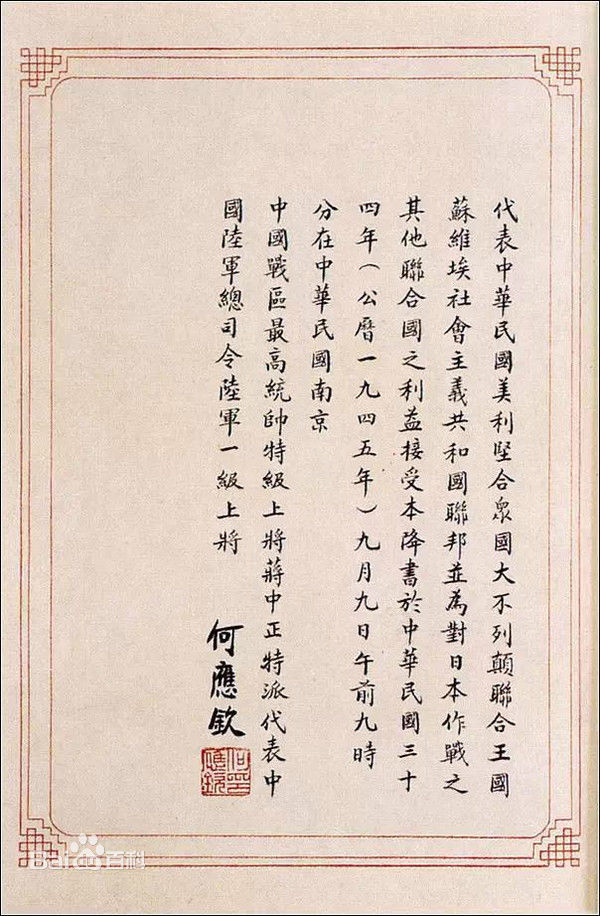 代表中華民國美利堅合衆國大不列顛聯合王國
蘇維埃社會主義共和國聯邦並為對日本作戰之
其他聯合國之利益接受本降書於中華民國三十
四年(公曆一九四五年)九月九日午前九時
分在中華民國南京
中國戰區最高統帥特級上將蔣中正特派代表中
國陸軍總司令陸軍一級上將
何應欽
何應欽印
Baidu百科